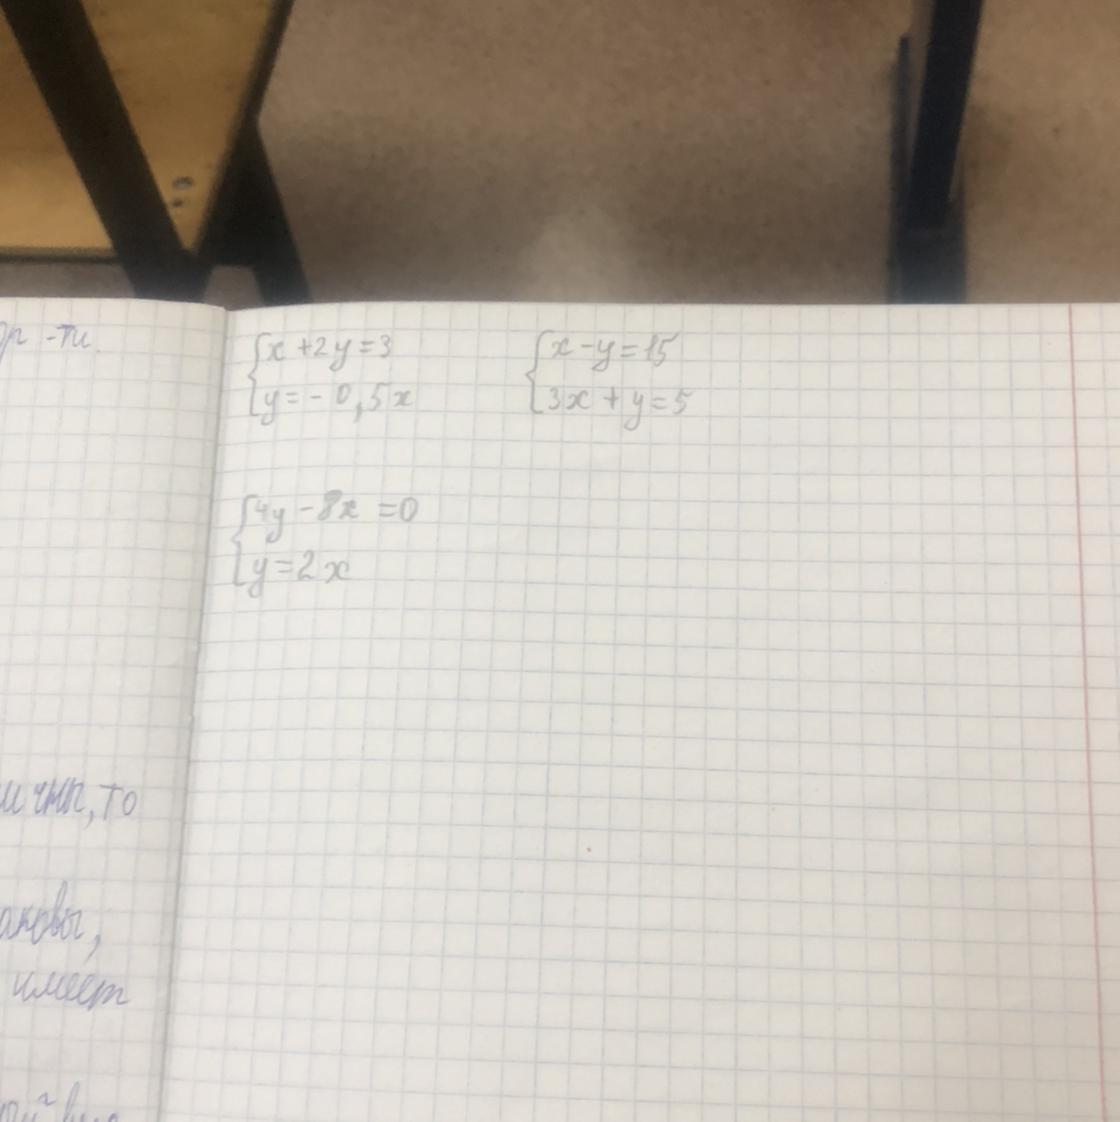 -ти.
x + 2y = 3
y = - 0,5x
x - y = 15
3x + y = 5
4y - 8x = 0
y = 2x
то
имеет